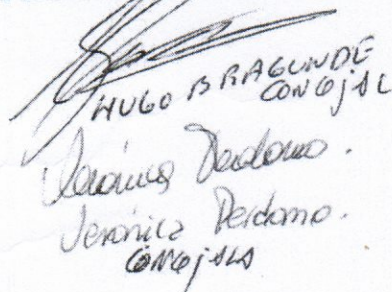 HUGO BRAGUNDE
CONCEJAL
Verónica Perdomo.
Verónica Perdomo.
CONCEJALA